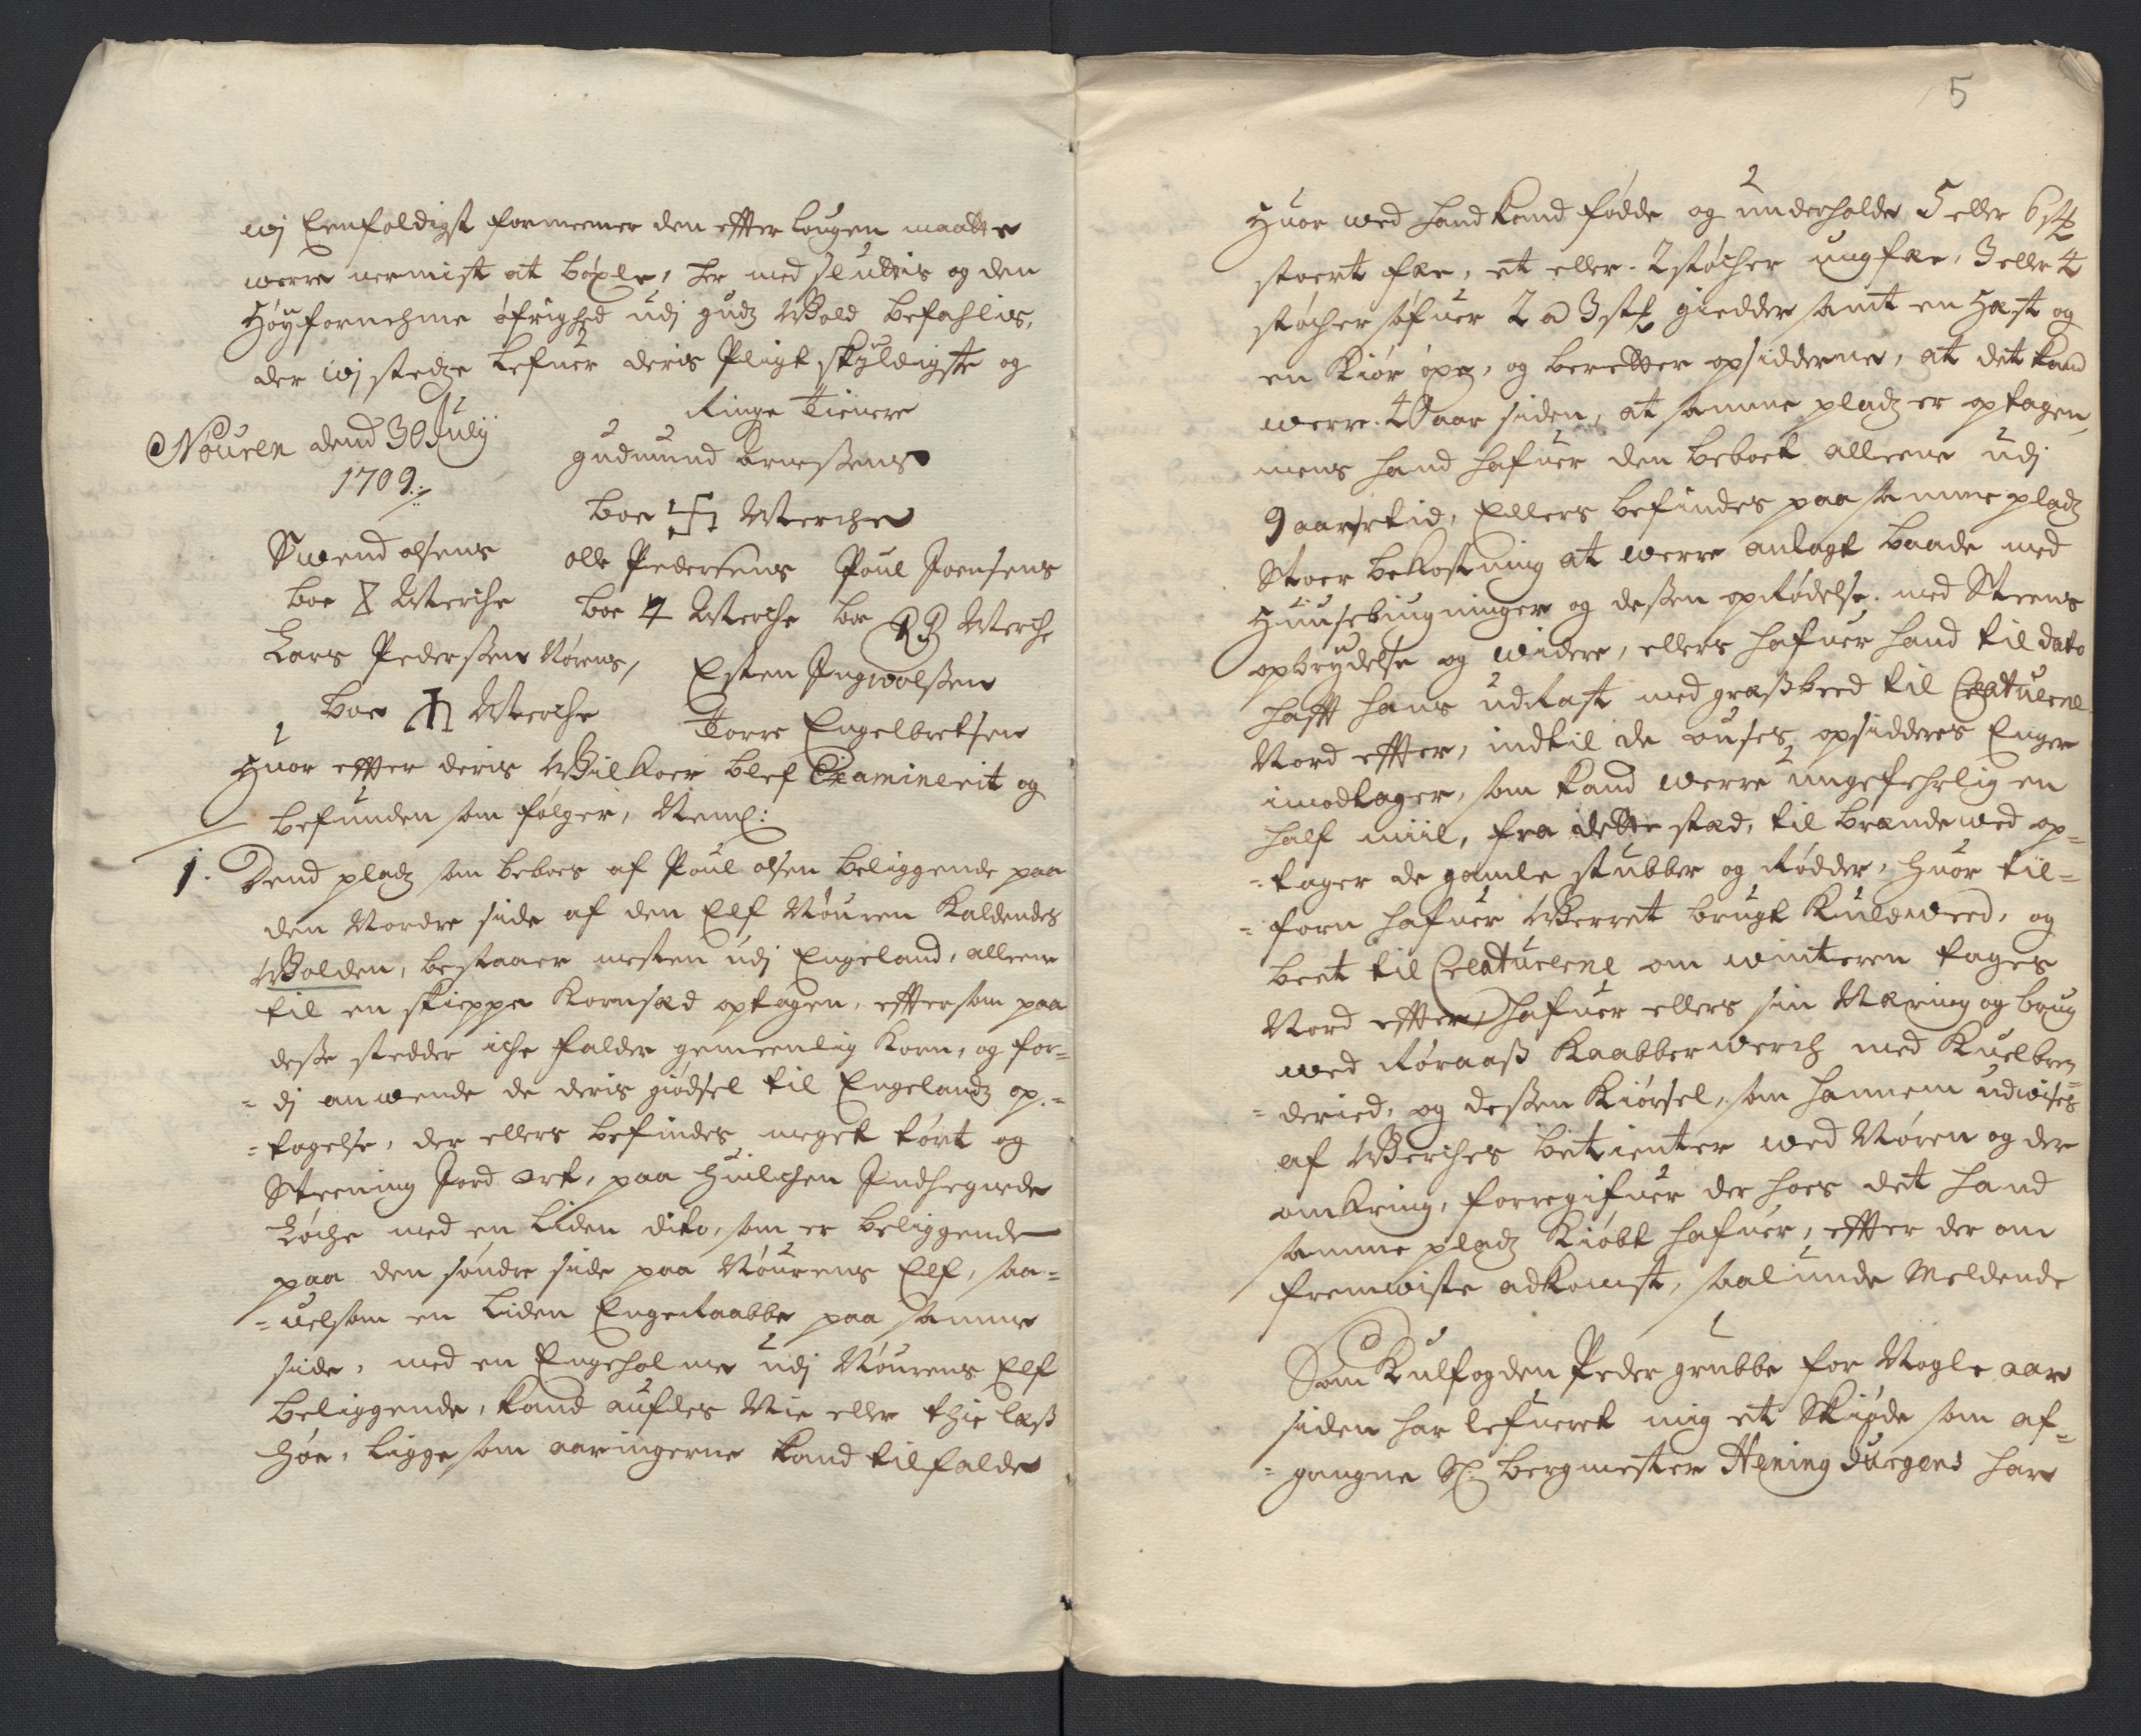 wj Eenfoldigst formeener den effter lougen maatte
werre nermist at böxle, her med sluttis og den
Höyfornehme öfrighed udj gudz Wold befahlis,
der wj stedze lefuer deris Pligt skyldigste og
ringe Tienere
Nouren dend 30 July
1709.
gudmund Arnessens
boe Merche
Swend olsens
boe Merche
olle Pedersens
boe Merche
Poul Joensens
boe Merche
Lars Pederssens Nörens,
boe Merche
Esten Ingwolssen
Torre Engelbretsen
Huor effter deris Wilkoer blef Examinerit og
befunden som fölger, Neml:
1. Dend pladz som beboes af Poul olsen beliggende paa
den Nordre side af den Elf Nöuren Kaldendes
Wolden, bestaaer mesten udj Engeland, alleene
til en skieppe Kornsæd optagen, effter som paa
desse stedder iche falder gemeenlig Korn, og for-
- dj anwende de deris giödsel til Engelandz op-
- tagelse, der ellers befindes meget tört og
Steening Jord art, paa huilchen Indhegnede
Löche med en liden dito, som er beliggende
paa den söndre side paa Nöurens Elf, saa-
- uelsom en liden Engeraabbe paa samme
side, med en Engeholme udj Nöurens Elf
beliggende, kand aufles Nie eller thie læss
höe, ligge som aaringerne kand tilfalde
5
Huor wed hand kand födde og underholde 5 eller 6 st
stoert fæe, et eller 2 stöcher ungfæe, 3 eller 4
stöcher söfuer 2 a 3 st giedder samt en Hæst og
en Kiör öxe, og beretter opsidderne, at det kand
werre 40 aar siden, at samme pladz er optagen,
mens hand hafuer den beboet alleene udj
9 aars tid, Ellers befindes paa samme pladz
Stoer bekostning at werre anlagt baade med
Huusebiugninger og dessen oprödelse med Steens
opbrydelse og widere, ellers hafuer hand til dato
hafft hans udrast med græssbeed til Creaturene
Nord effter, indtil de ouses opsidderes Enger
imodtager, som kand werre ungefehrlig en
half miil, fra dette stæd, til brændeweed op-
- tager de gamle stubber og Rödder, huor til-
- forn hafuer Werret brugt Kuleweed, og
beet til Creaturerne om winteren tages
Nord effter, hafuer ellers sin Næring og brug
wed Röraass Kaabberwerch med Kuelbren-
- deried, og dessen Kiörsel, som hannem udwises
af Werches betienter wed Nören og der
omkring, forregifuer der hoes det hand
samme pladz Kiöbt hafuer, effter der om
fremwiste adkomst, saalunde Meldende
Som Kulfogden Peder grubbe for Nogle aar
siden har lefueret mig et Skiöde som af-
- gangne Sl: bergmester Hening Jurgens har